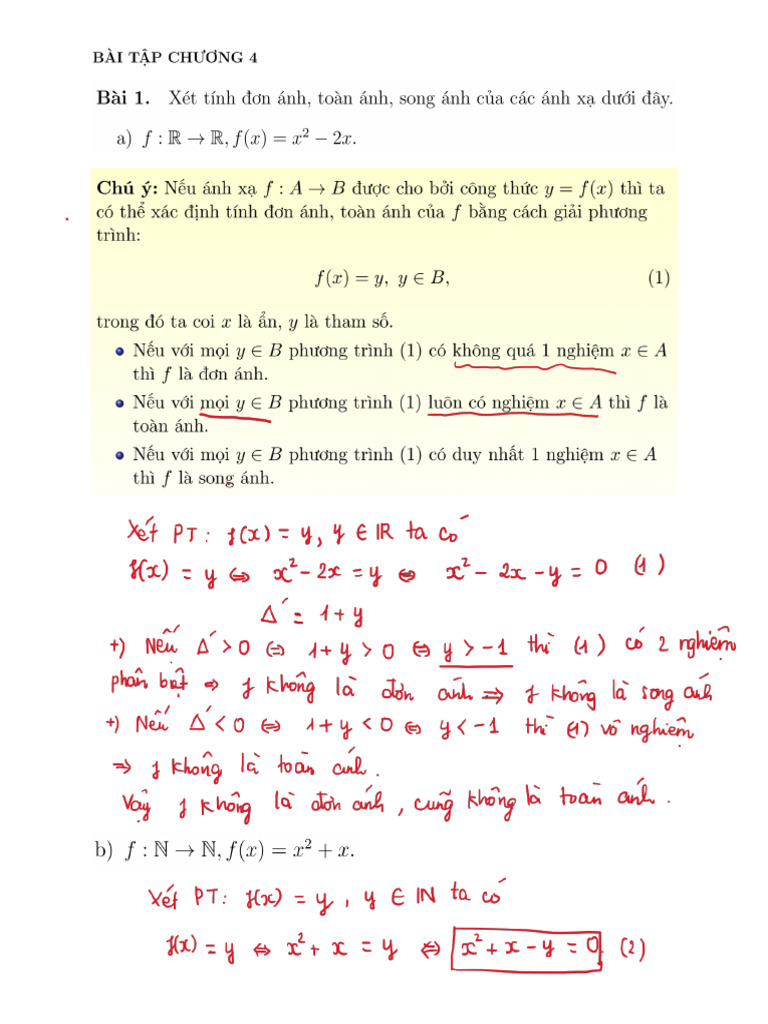 BÀI TẬP CHƯƠNG 4
Bài 1. Xét tính đơn ánh, toàn ánh, song ánh của các ánh xạ dưới đây.
a) f : ℝ → ℝ, f(x) = x² − 2x.
Chú ý: Nếu ánh xạ f : A → B được cho bởi công thức y = f(x) thì ta
có thể xác định tính đơn ánh, toàn ánh của f bằng cách giải phương
trình:
f(x) = y, y ∈ B, (1)
trong đó ta coi x là ẩn, y là tham số.
• Nếu với mọi y ∈ B phương trình (1) có không quá 1 nghiệm x ∈ A
thì f là đơn ánh.
• Nếu với mọi y ∈ B phương trình (1) luôn có nghiệm x ∈ A thì f là
toàn ánh.
• Nếu với mọi y ∈ B phương trình (1) có duy nhất 1 nghiệm x ∈ A
thì f là song ánh.
Xét PT: f(x) = y, y ∈ IR ta có
f(x) = y ⇔ x² − 2x = y ⇔ x² − 2x − y = 0 (1)
Δ' = 1 + y
+) Nếu Δ' > 0 ⇔ 1 + y > 0 ⇔ y > −1 thì (1) có 2 nghiệm
phân biệt ⇒ f không là đơn ánh ⇒ f không là song ánh
+) Nếu Δ' < 0 ⇔ 1 + y < 0 ⇔ y < −1 thì (1) vô nghiệm
⇒ f không là toàn ánh.
Vậy f không là đơn ánh, cũng không là toàn ánh.
b) f : ℕ → ℕ, f(x) = x² + x.
Xét PT: f(x) = y, y ∈ IN ta có
f(x) = y ⇔ x² + x = y ⇔ x² + x − y = 0. (2)